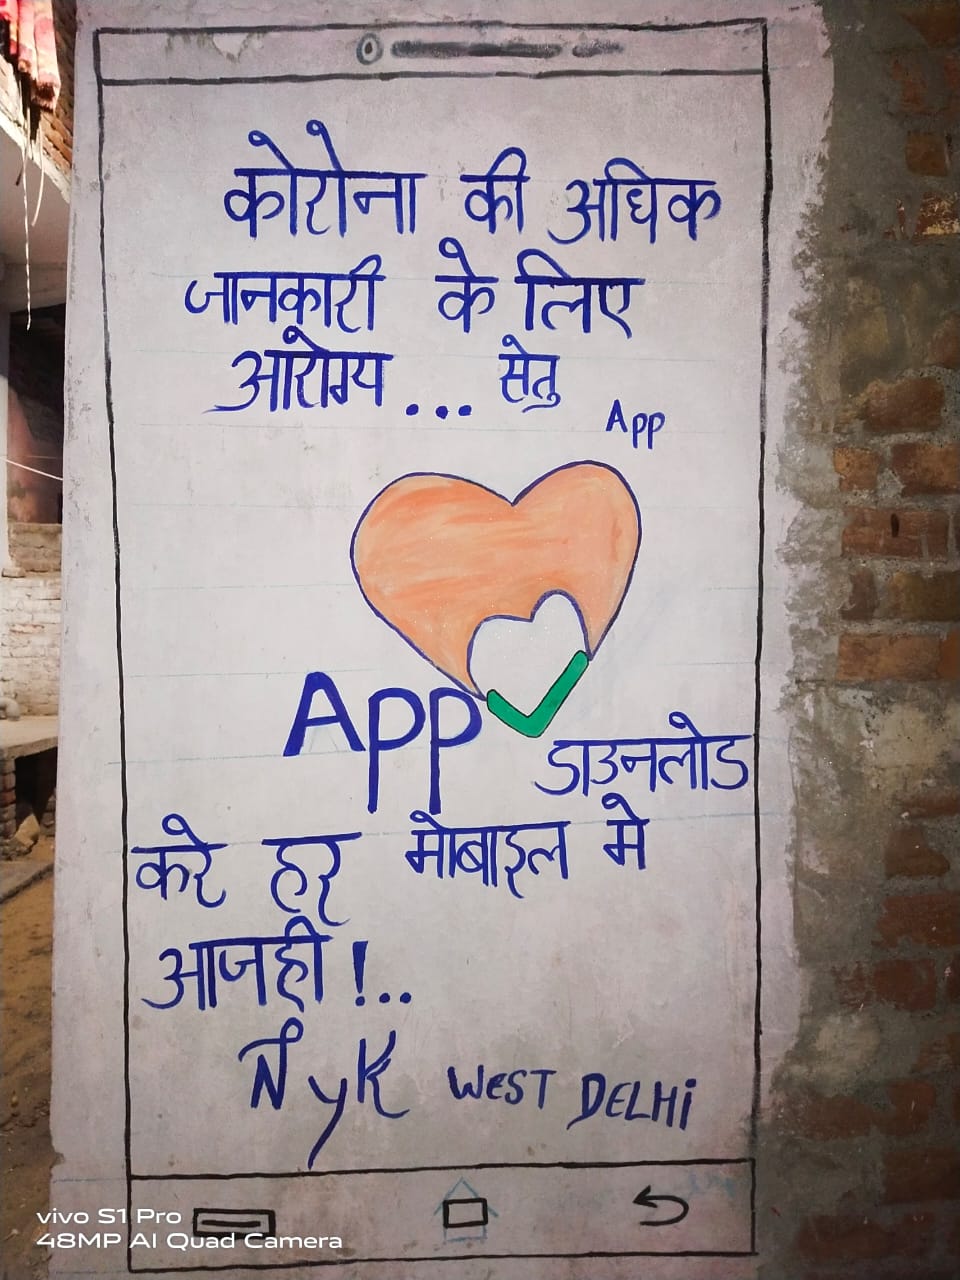 कोरोना की अधिक
जानकारी के लिए
आरोग्य ... सेतु
App
App
डाउनलोड
करे हर मोबाइल मे
आजही !..
NyK WEST DELHi
vivo S1 Pro
48MP AI Quad Camera